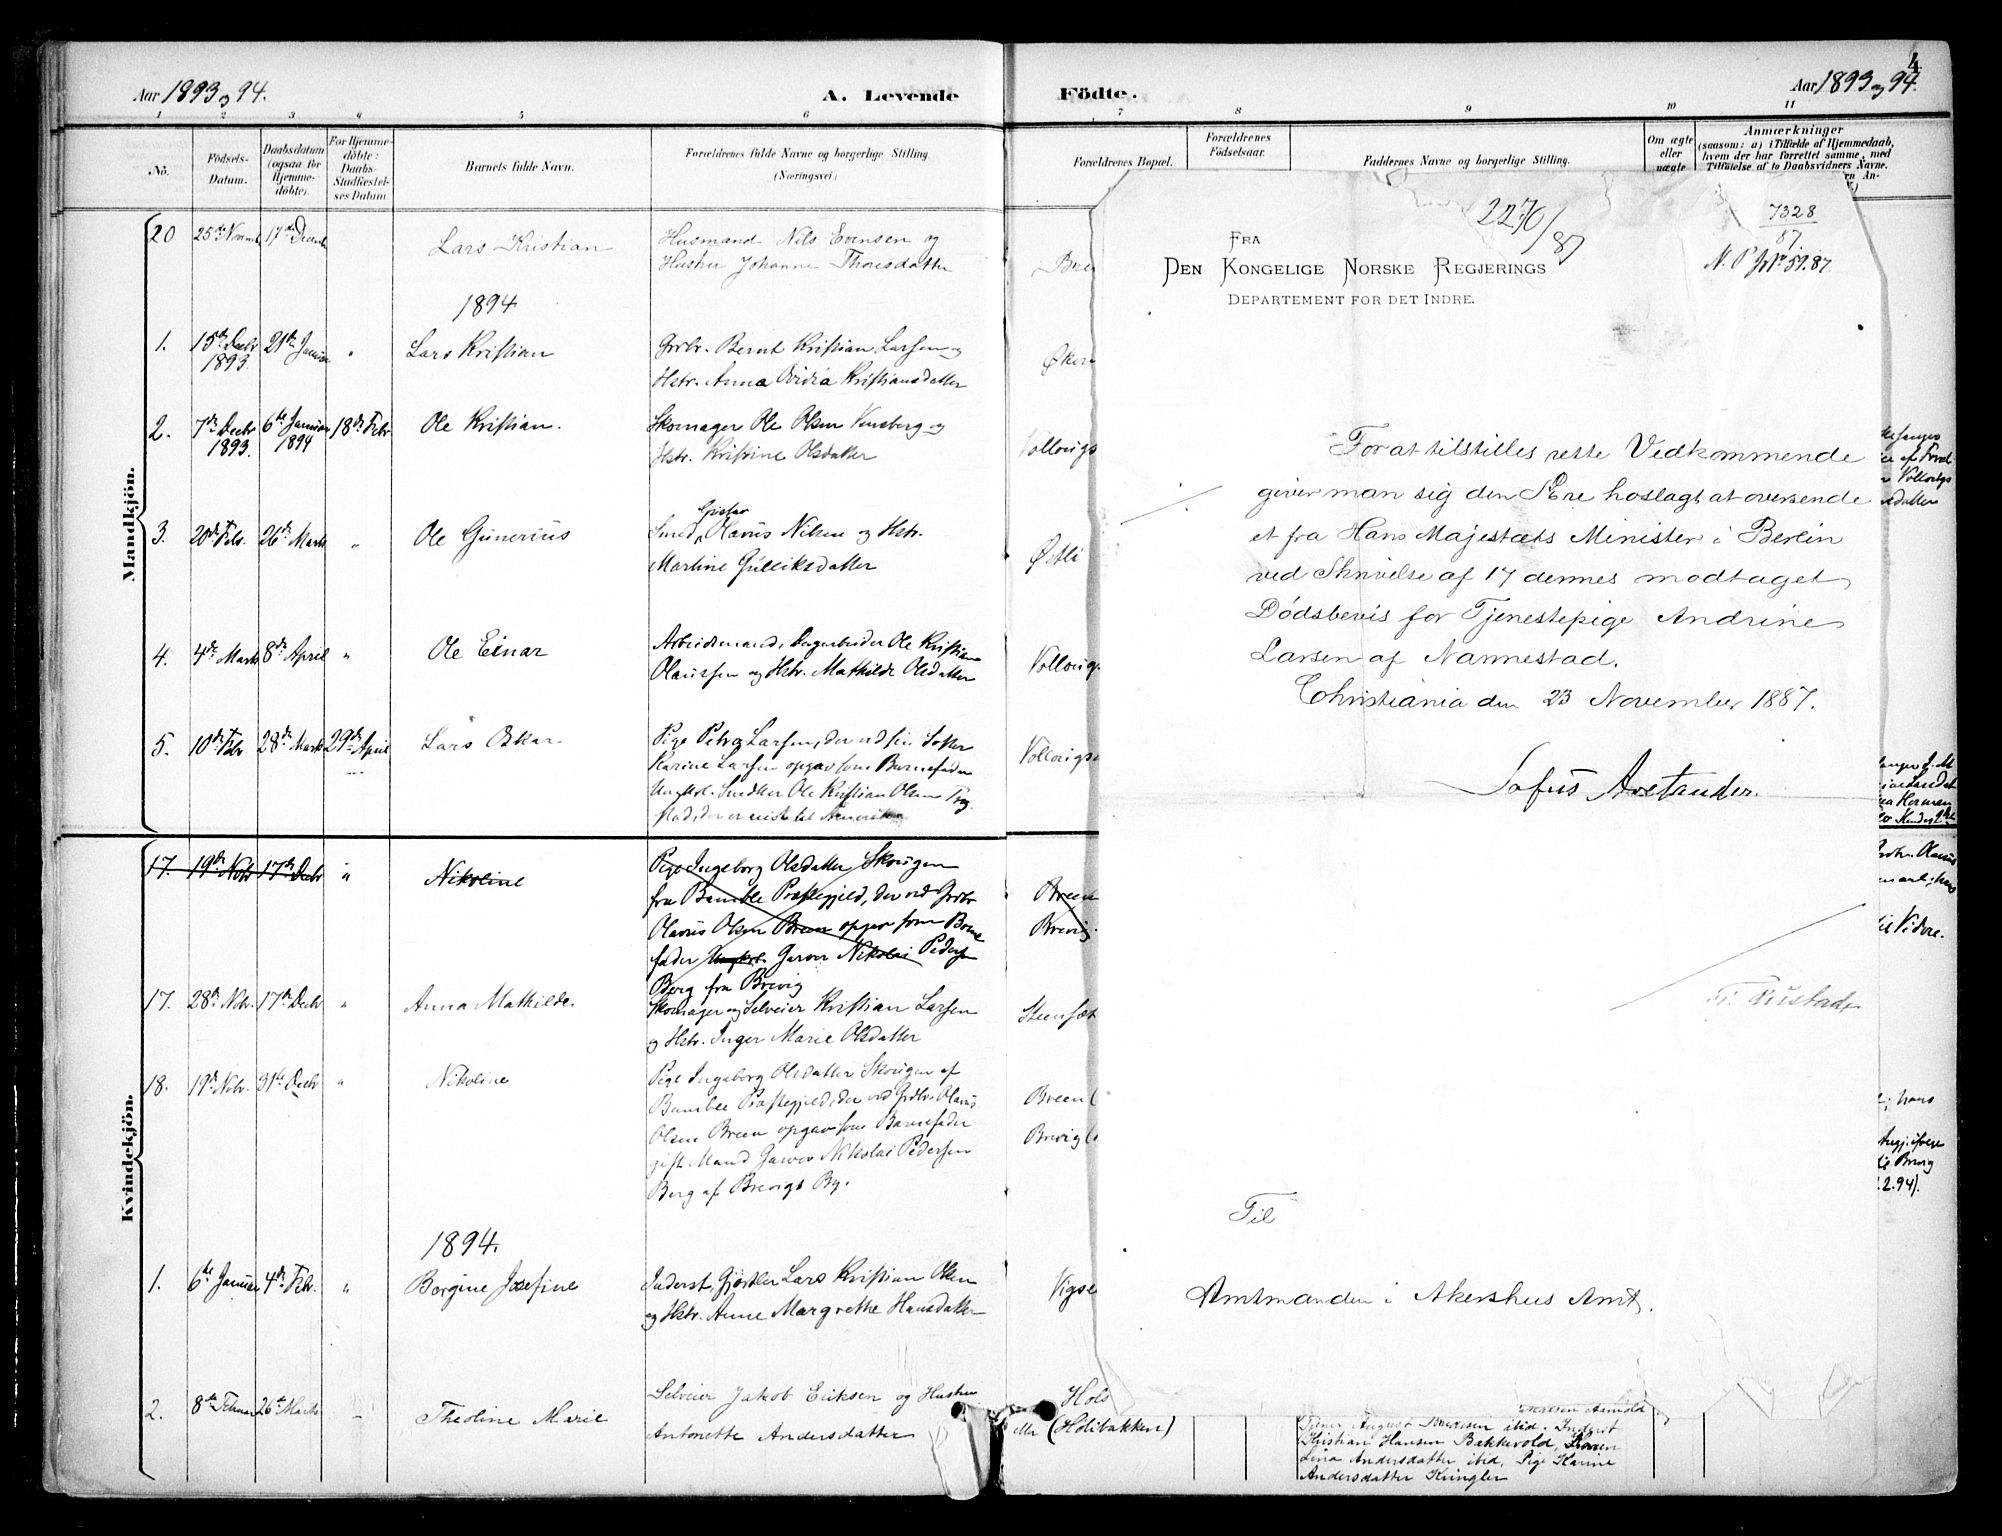 4
Aar 1893 og 94.
A. Levende
Födte.
Aar 1893 og 94.
1 2 3 4 5 6 7 8 9 10 11
No.
Födsels-Datum.
Daabsdatum (ogsaa for Hjemmedöbte).
For Hjemmedöbte: Daabs Stadfæstelses Datum
Barnets fulde Navn.
Forældrenes fulde Navne og borgerlige Stilling (Næringsvei)
Forældrenes Bopæl.
Forældrenes Födselsaar.
Faddernes Navne og borgerlige Stilling.
Om ægte eller uægte
Anmærkninger
(saasom: a) i Tilfælde af Hjemmedaab,
hvem der har forrettet samme, med
Tilföielse af to Daabsvidners Navne.
Mandkjön.
20 25de Novemb 17de Decemb Lars Kristian Husmand Nils Evensen og
Hustru Johanne Thoresdatter
1894
1. 15de Decbr 1893. 21de Januar " Lars Kristian Grdbr. Bernt Kristian Larsen og
Hstr. Anna Ovidia Kristiansdatter
2. 7de Decbr 1893. 6te Januar 1894 18de Febr Ole Kristian. Skomager Ole Olsen Vensberg og
Hstr. Kristine Olsdatter
3. 20de Febr. 26de Marts " Ole Gunerius Smed, Olavus Nilsen og Hstr.
Martine Gulliksdatter Østli
4. 4de Marts 8de April " Ole Einar Arbeidsmand, Dagarbeider Ole Kristian
Olaussen og Hstr. Mathilde Olsdatter
5. 10de Febr 28de Marts 29de April Lars Oskar Pige Petra Larsen, der ved sin Søster
Karine Larsen opgav som Barnefader
Ungkl. Snedker Ole Kristian Olsen
stad, der er reist til Amerika
Kvindekjön.
17. 19de Nobr 17de Decbr " Nikoline Pige Ingeborg Olsdatter Skougen
fra Bamble Præstegjeld, der ved Grdbr Breen
Olavus Olsen Breen opgav som Barne Brevig
fader Ungkl. Garver Nikolai Pedersen
Berg fra Brevig
17. 28de Nobr. 17de Decbr " Anna Mathilde. Skomager og Selveier Kristian Larsen
og Hstr. Inger Marie Olsdatter
18. 19de Nobr. 31te Decbr " Nikoline Pige Ingeborg Olsdatter Skougen af
Bamble Præstegjeld, der ved Grdbr. Olavus Breen (
Olsen Breen opgav som Barnefader Brevig
gift Mand Garver Nikolai Pedersen
Berg af Brevigs By.
1894.
1. 6te Januar 4de Febr. " Borgine Josefine Inderst, Gjørtler Lars Kristian Olsen
og Hstr. Anne Margrethe Hansdatter
2. 8de Februar 26de Marts Theoline Marie Selveier Jakob Eriksen og Hustru Hols
Antonette Andersdatter eller (Holibakken)
Tjener August ibid. Inderst
Kristian Hansen Bakkevold,
Lina Andersdatter ibid, Pige Karine
Andersdatter Kringler
2270/87
7328
87
N. P. Jr. No 59.87.
FRA
DEN KONGELIGE NORSKE REGJERINGS
DEPARTEMENT FOR DET INDRE.
For at tilstilles rette Vedkommende
giver man sig den Ære hoslagt at oversende
et fra Hans Majestæts Minister i Berlin
ved Skrivelse af 17 dennes modtaget
Dödsbevis for Tjenestepige Andrine
Larsen af Nannestad.
Christiania den 23 November 1887.
Sofus Arctander.
Til
Amtmanden i Akershus Amt.